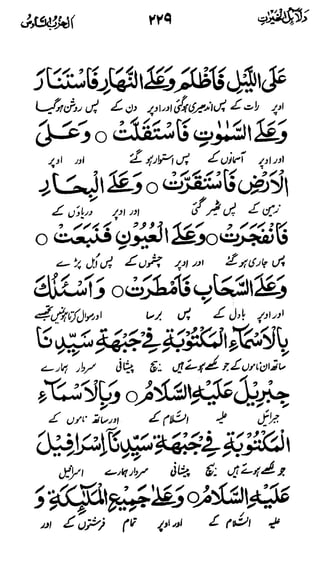 دلائل الخیرات ۲۲۹ الحزب السادس
عَلَى اللَّيْلِ فَاَظْلَمَ وَعَلَى النَّهَارِ فَاسْتَنَارَ
اوپر رات کے پس اندھیری ہوگئی اور اوپر دن کے پس روشن ہوگیا
وَعَلَى السَّمٰوٰتِ فَاسْتَقَلَّتْ ○ وَعَلَى
اور اوپر آسمانوں کے پس استوار ہو گئے اور اوپر
الْاَرْضِ فَاسْتَقَرَّتْ ○ وَعَلَى الْبِحَارِ
زمین کے پس ٹھیر گئی اور اوپر دریاؤں کے
فَانْفَجَرَتْ ○ وَعَلَى الْعُيُوْنِ فَنَبَعَتْ ○
پس جاری ہو گئے اور اوپر چشموں کے پس ابل پڑے
وَعَلَى السَّحَابِ فَاَمْطَرَتْ ○ وَاَسْئَلُكَ
اور اوپر بادل کے پس برسا اور سوال کرتا ہوں میں تجھسے
بِالْاَسْمَآءِ الْمَكْتُوْبَةِ فِيْ جَبْهَةِ سَيِّدِنَا
ساتھ ان ناموں کے جو لکھے ہوئے ہیں بیچ پیشانی سردار ہمارے
جِبْرِيْلَ عَلَيْهِ السَّلَامُ ○ وَبِالْاَسْمَآءِ
جبرائیل علیہ السّلام کے اور ساتھ ناموں کے
الْمَكْتُوْبَةِ فِيْ جَبْهَةِ سَيِّدِنَا اِسْرَافِيْلَ
جو لکھے ہوئے ہیں بیچ پیشانی سردار ہمارے اسرافیل
عَلَيْهِ السَّلَامُ ○ وَعَلٰى جَمِيْعِ الْمَلٰٓئِكَةِ وَ
علیہ السّلام کے اور اوپر تمام فرشتوں کے اور